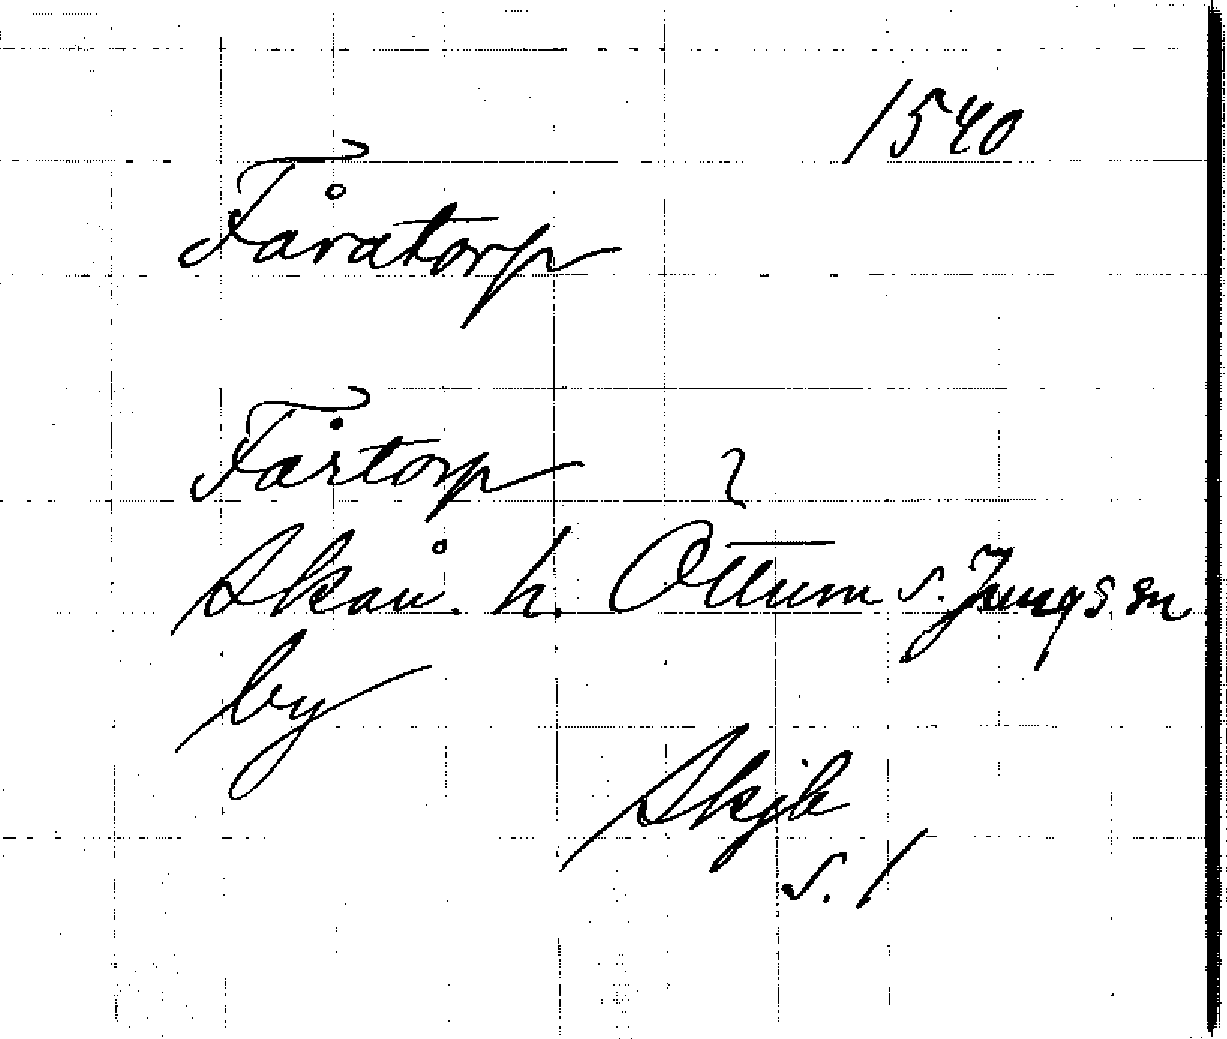 1540
Fåratorp
Fårtorp ?
Skån. h. Ottum s. Jungs sn
by
Skjb
s. 1